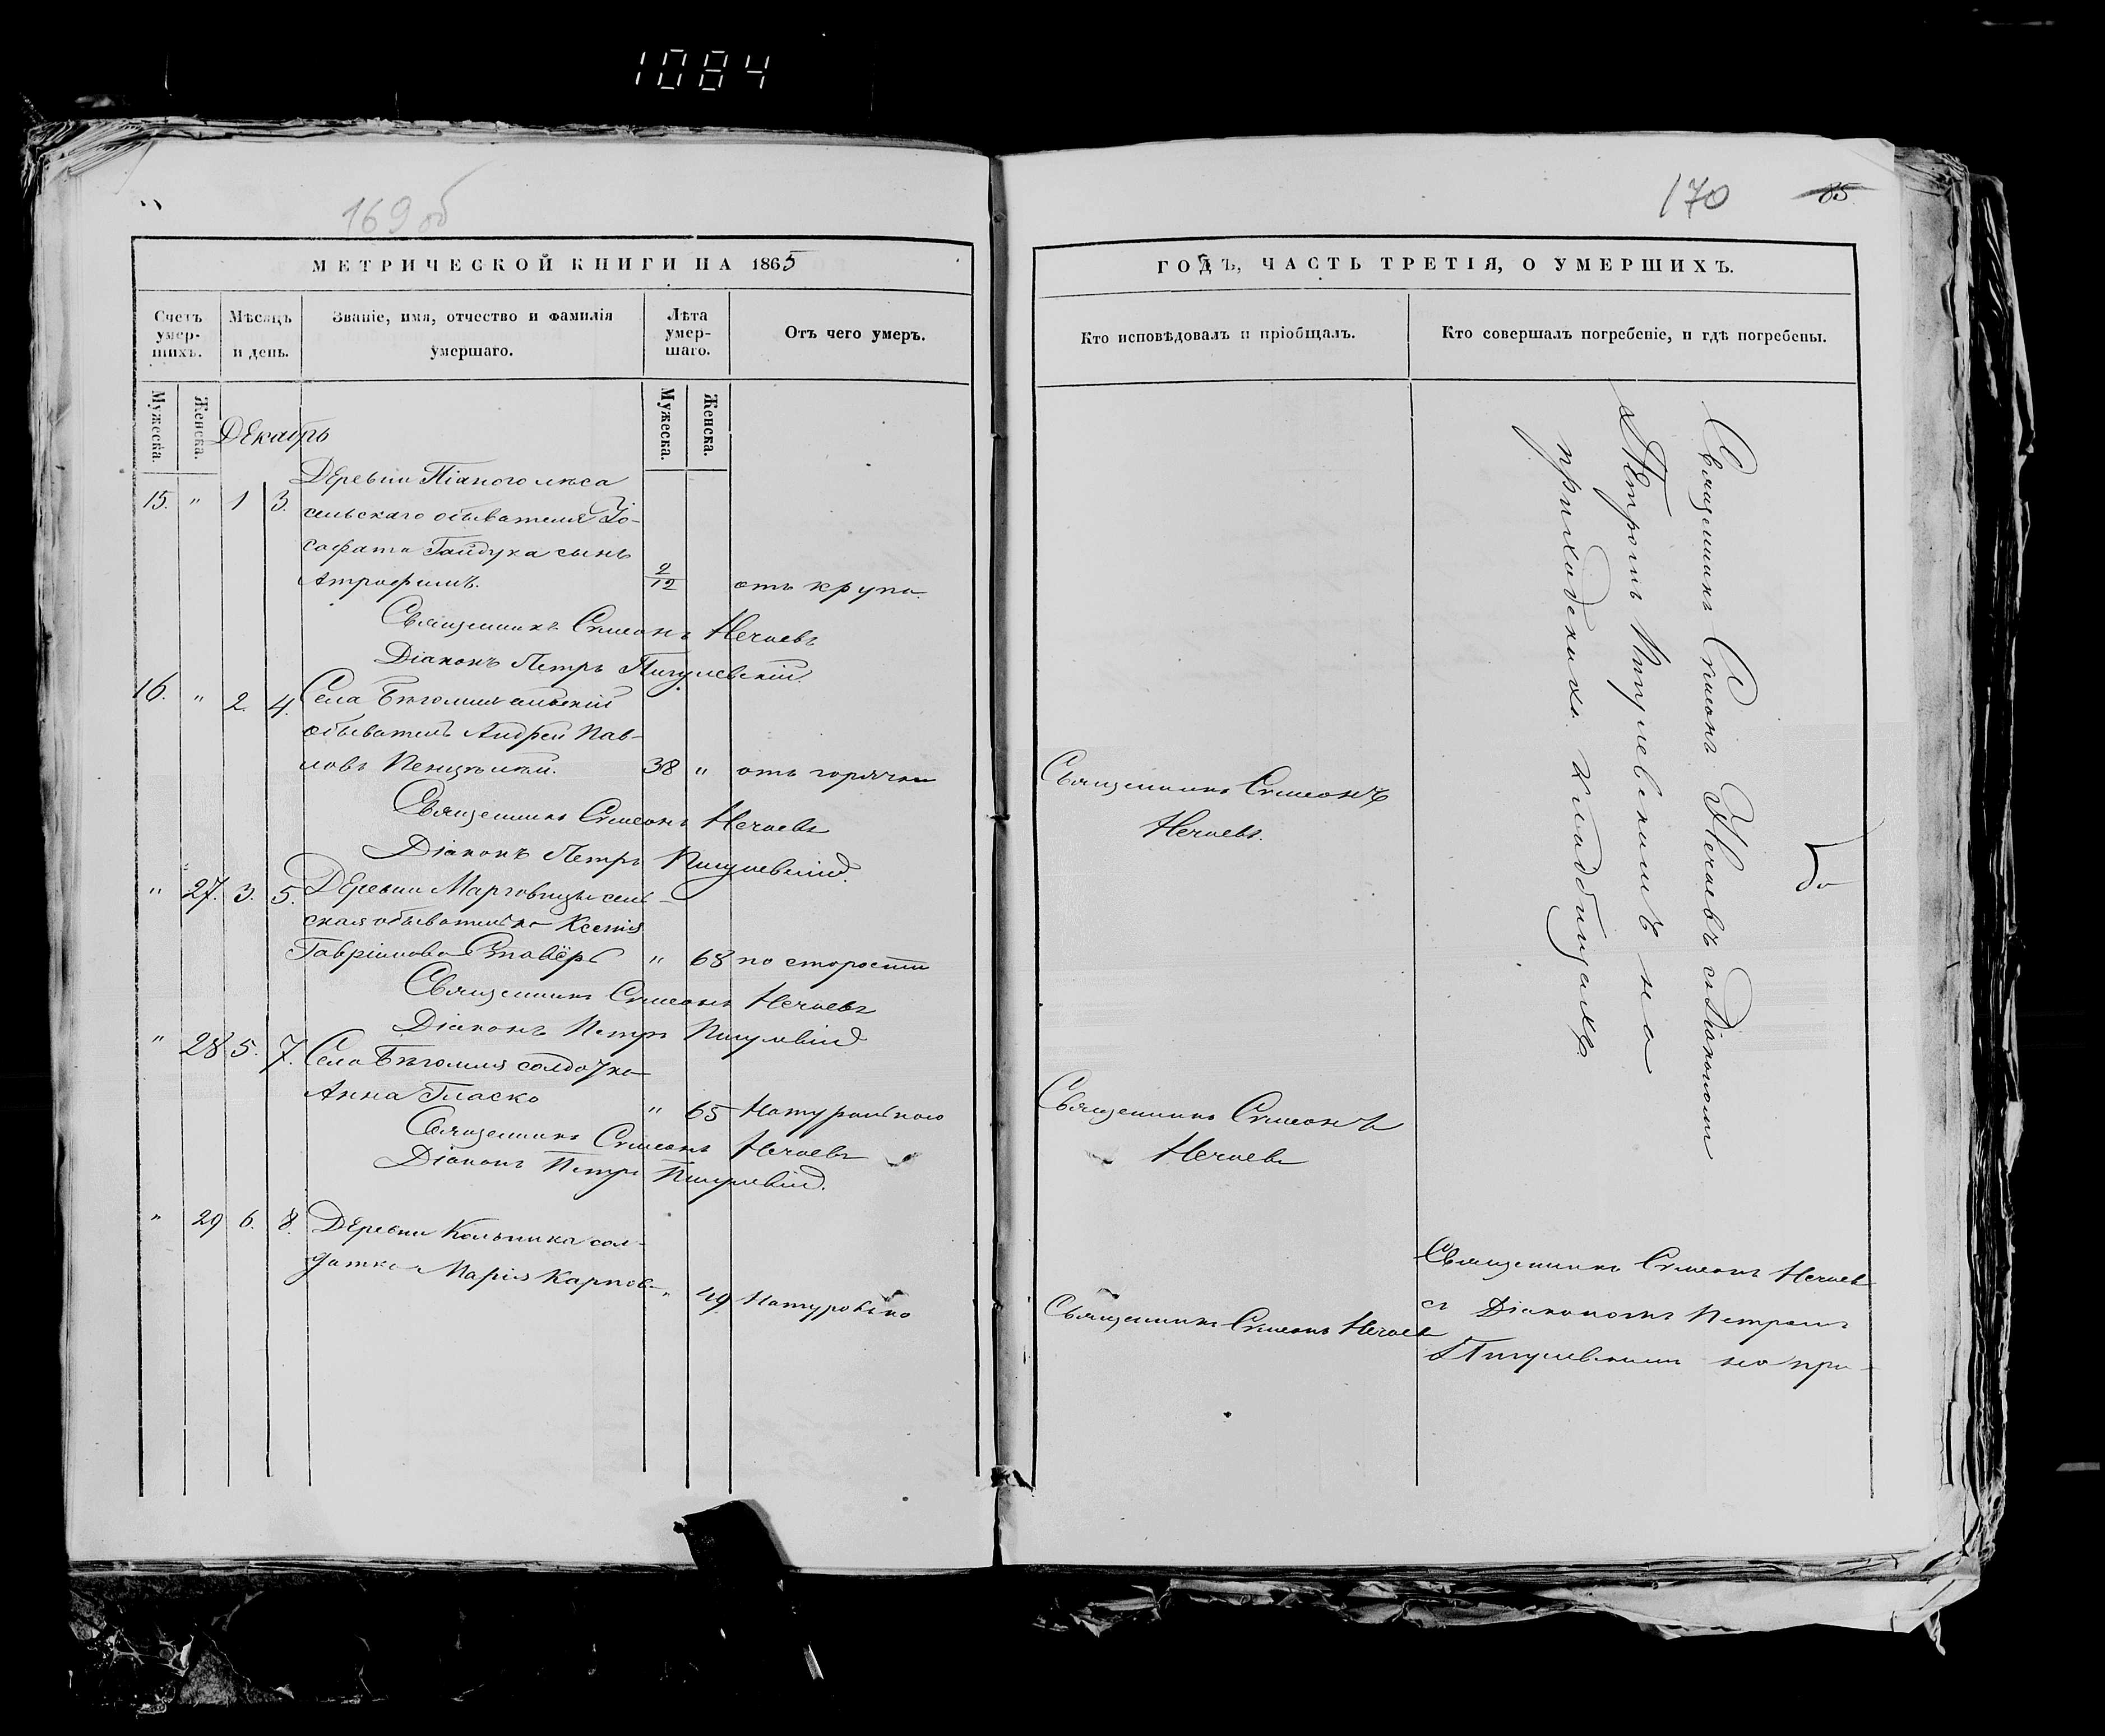 1084
169 об
МЕТРИЧЕСКОЙ КНИГИ НА 1865
Счетъ умер-шихъ.
Мѣсяцъ и день.
Званіе, имя, отчество и фамилія умершаго.
Лѣта умер-шаго.
Отъ чего умеръ.
Мужеска.
Женска.
Мужеска.
Женска.
Декабрь
Деревни Піаного лѣса
15. " 1 3. сельскаго обывателя Іо-
сафата Гайдука сынъ
Атрофимъ. 2/12 отъ крупа.
Священникъ Симеонъ Нечаевъ
Діаконъ Петръ Пигулевскій.
16. " 2. 4. Села Бѣгомля сельскій
обыватель Андрей Пав-
ловъ 38 " отъ горячки
Священникъ Симеонъ Нечаевъ
Діаконъ Петръ Пигулевскій.
" 27. 3. 5. Деревни Марговицы сель-
ская обывателька Ксенія
Гавріилова Ставёръ " 68 по старости
Священникъ Симеонъ Нечаевъ
Діаконъ Петръ Пигулевскій
" 28 5. 7. Села Бѣгомля солдатка
Анна Гласко " 65 Натурально
Священникъ Симеонъ Нечаевъ
Діаконъ Петръ Пигулевскій.
" 29 6. 8. Деревни Кольника сол-
датка Марія Карпов- " 49 Натурально
170
85
ГОДЪ, ЧАСТЬ ТРЕТІЯ, О УМЕРШИХЪ.
Кто исповѣдовалъ и пріобщалъ.
Кто совершалъ погребеніе, и гдѣ погребены.
Священникъ Симеонъ
Нечаевъ.
Священникъ Симеонъ
Нечаевъ
Священникъ Симеонъ Нечаевъ
Священникъ Симеонъ Нечаевъ и Діакономъ
Петромъ Пигулевскимъ на
приходскихъ кладбищахъ.
Священникъ Симеонъ Нечаевъ
съ Діакономъ Петромъ
Пигулевскимъ на при-